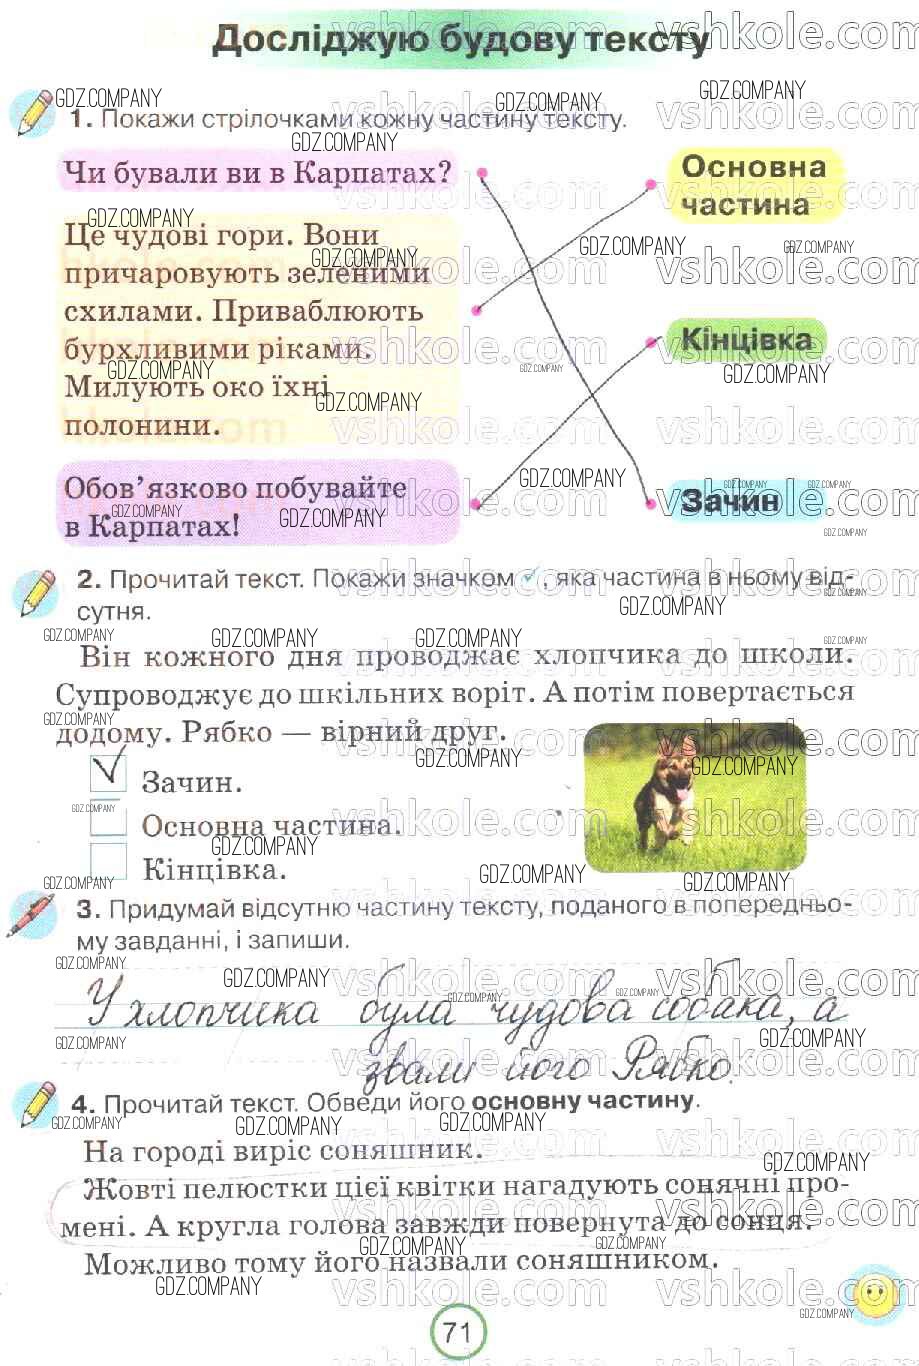 Досліджую будову тексту
1. Покажи стрілочками кожну частину тексту.
Чи бували ви в Карпатах?
Це чудові гори. Вони
причаровують зеленими
схилами. Приваблюють
бурхливими ріками.
Милують око їхні
полонини.
Обов’язково побувайте
в Карпатах!
Основна
частина
Кінцівка
Зачин
2. Прочитай текст. Покажи значком ✓, яка частина в ньому від-
сутня.
Він кожного дня проводжає хлопчика до школи.
Супроводжує до шкільних воріт. А потім повертається
додому. Рябко — вірний друг.
✓ Зачин.
Основна частина.
Кінцівка.
3. Придумай відсутню частину тексту, поданого в попередньо-
му завданні, і запиши.
У хлопчика була чудова собака, а
звали його Рябко.
4. Прочитай текст. Обведи його основну частину.
На городі виріс соняшник.
Жовті пелюстки цієї квітки нагадують сонячні про-
мені. А кругла голова завжди повернута до сонця.
Можливо тому його назвали соняшником.
71
GDZ.COMPANY
vshkole.com